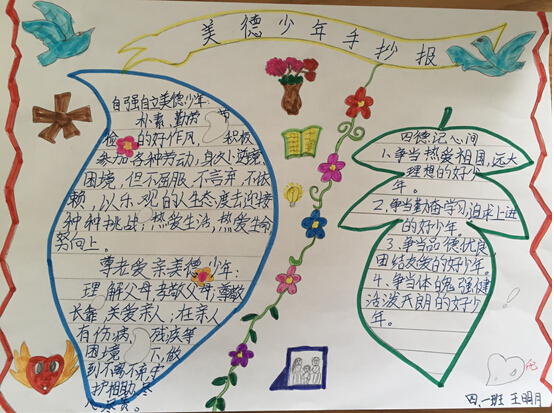 美德少年手抄报
自强自立美德少年:
朴素、勤劳、节
俭的好作风,积极
参加各种劳动,身处小逆境
困境,但不屈服、不言弃、不依
赖,以乐观的人生态度去迎接
种种挑战;热爱生活,热爱生命
努力向上。
尊老爱亲美德少年:
理解父母,孝敬父母,尊敬
长辈,关爱亲人;在亲人
有伤病、残疾等
困境下,做
到不离不弃,守
护相助,
四德记心间
1、争当热爱祖国,远大
理想的好少
年。
2、争当勤奋学习,追求上进
的好少年。
3、争当品德优良,
团结友爱的好少年。
4、争当体魄强健
活泼开朗的好少
年。
四、一班 王明月